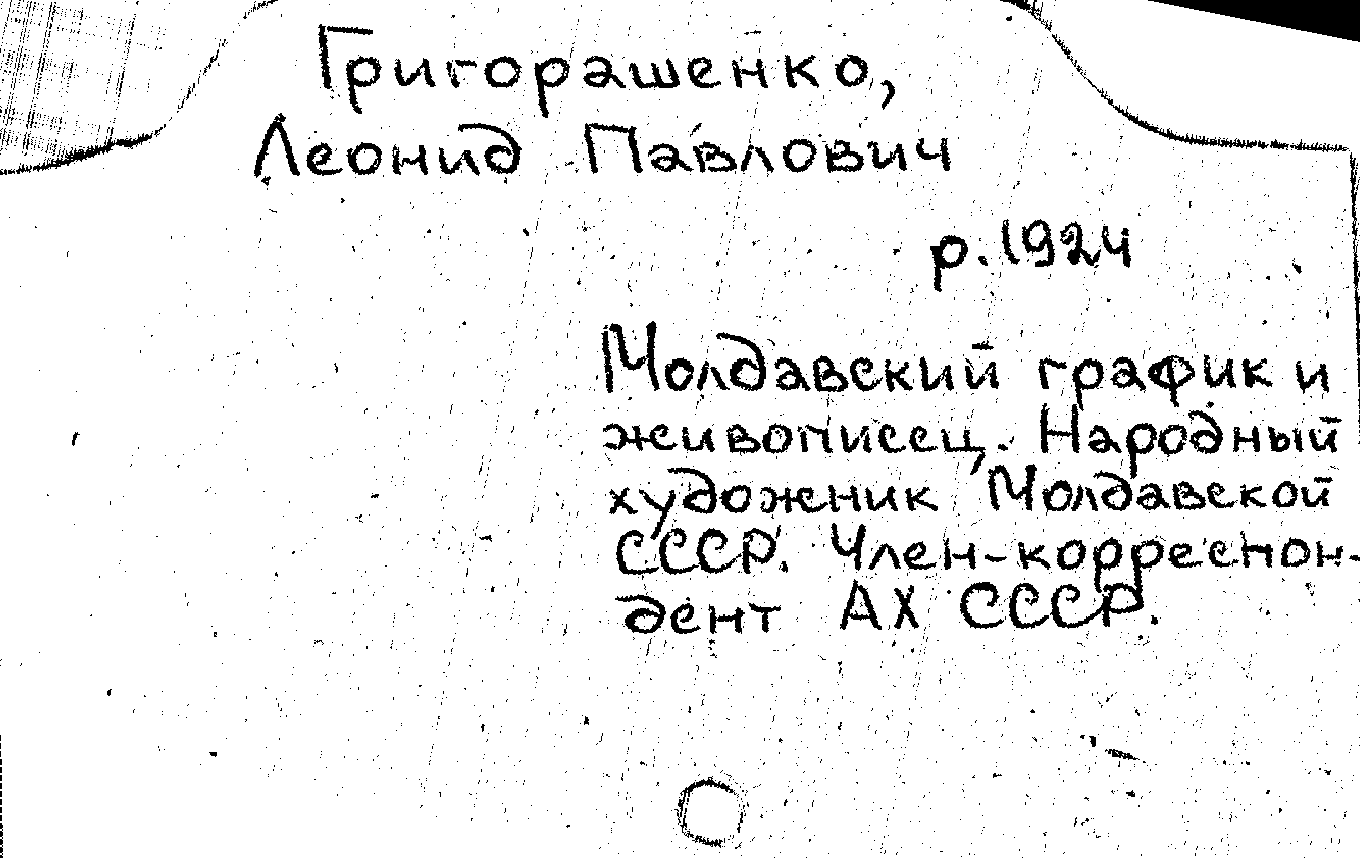 Григорашенко,
Леонид Павлович
р. 1924
Молдавский график и
живописец. Народный
художник Молдавской
СССР. Член-корреспон-
дент АХ СССР.